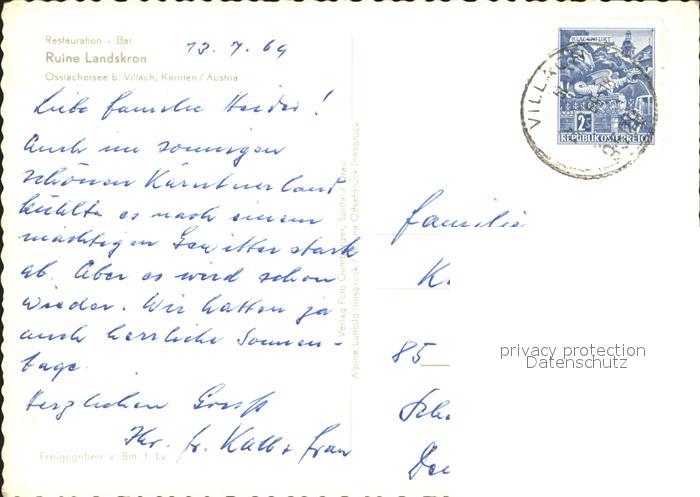 Restauration - Bar
Ruine Landskron
Ossiachersee b. Villach, Kärnten / Austria
13. 7. 69
Liebe Familie !
Auch im sonnigen
schönen Kärntnerland
kühlte es nach einem
mächtigen Gewitter stark
ab. Aber es wird schon
wieder. Wir hatten ja
auch herrliche Sonnen-
tage.
Herzlichen Gruß
Ihr. fr. Kalb + Frau
Freigegeben v. Bm. f. Lv.
Verlag Foto Spittal / Drau
Alpine Luftbild Innsbruck / Offsetdruck Innsbruck
KLAGENFURT
2
REPUBLIK ÖSTERREICH
VILLACH
Familie
K.
85
Sch
Deu
privacy protection
Datenschutz